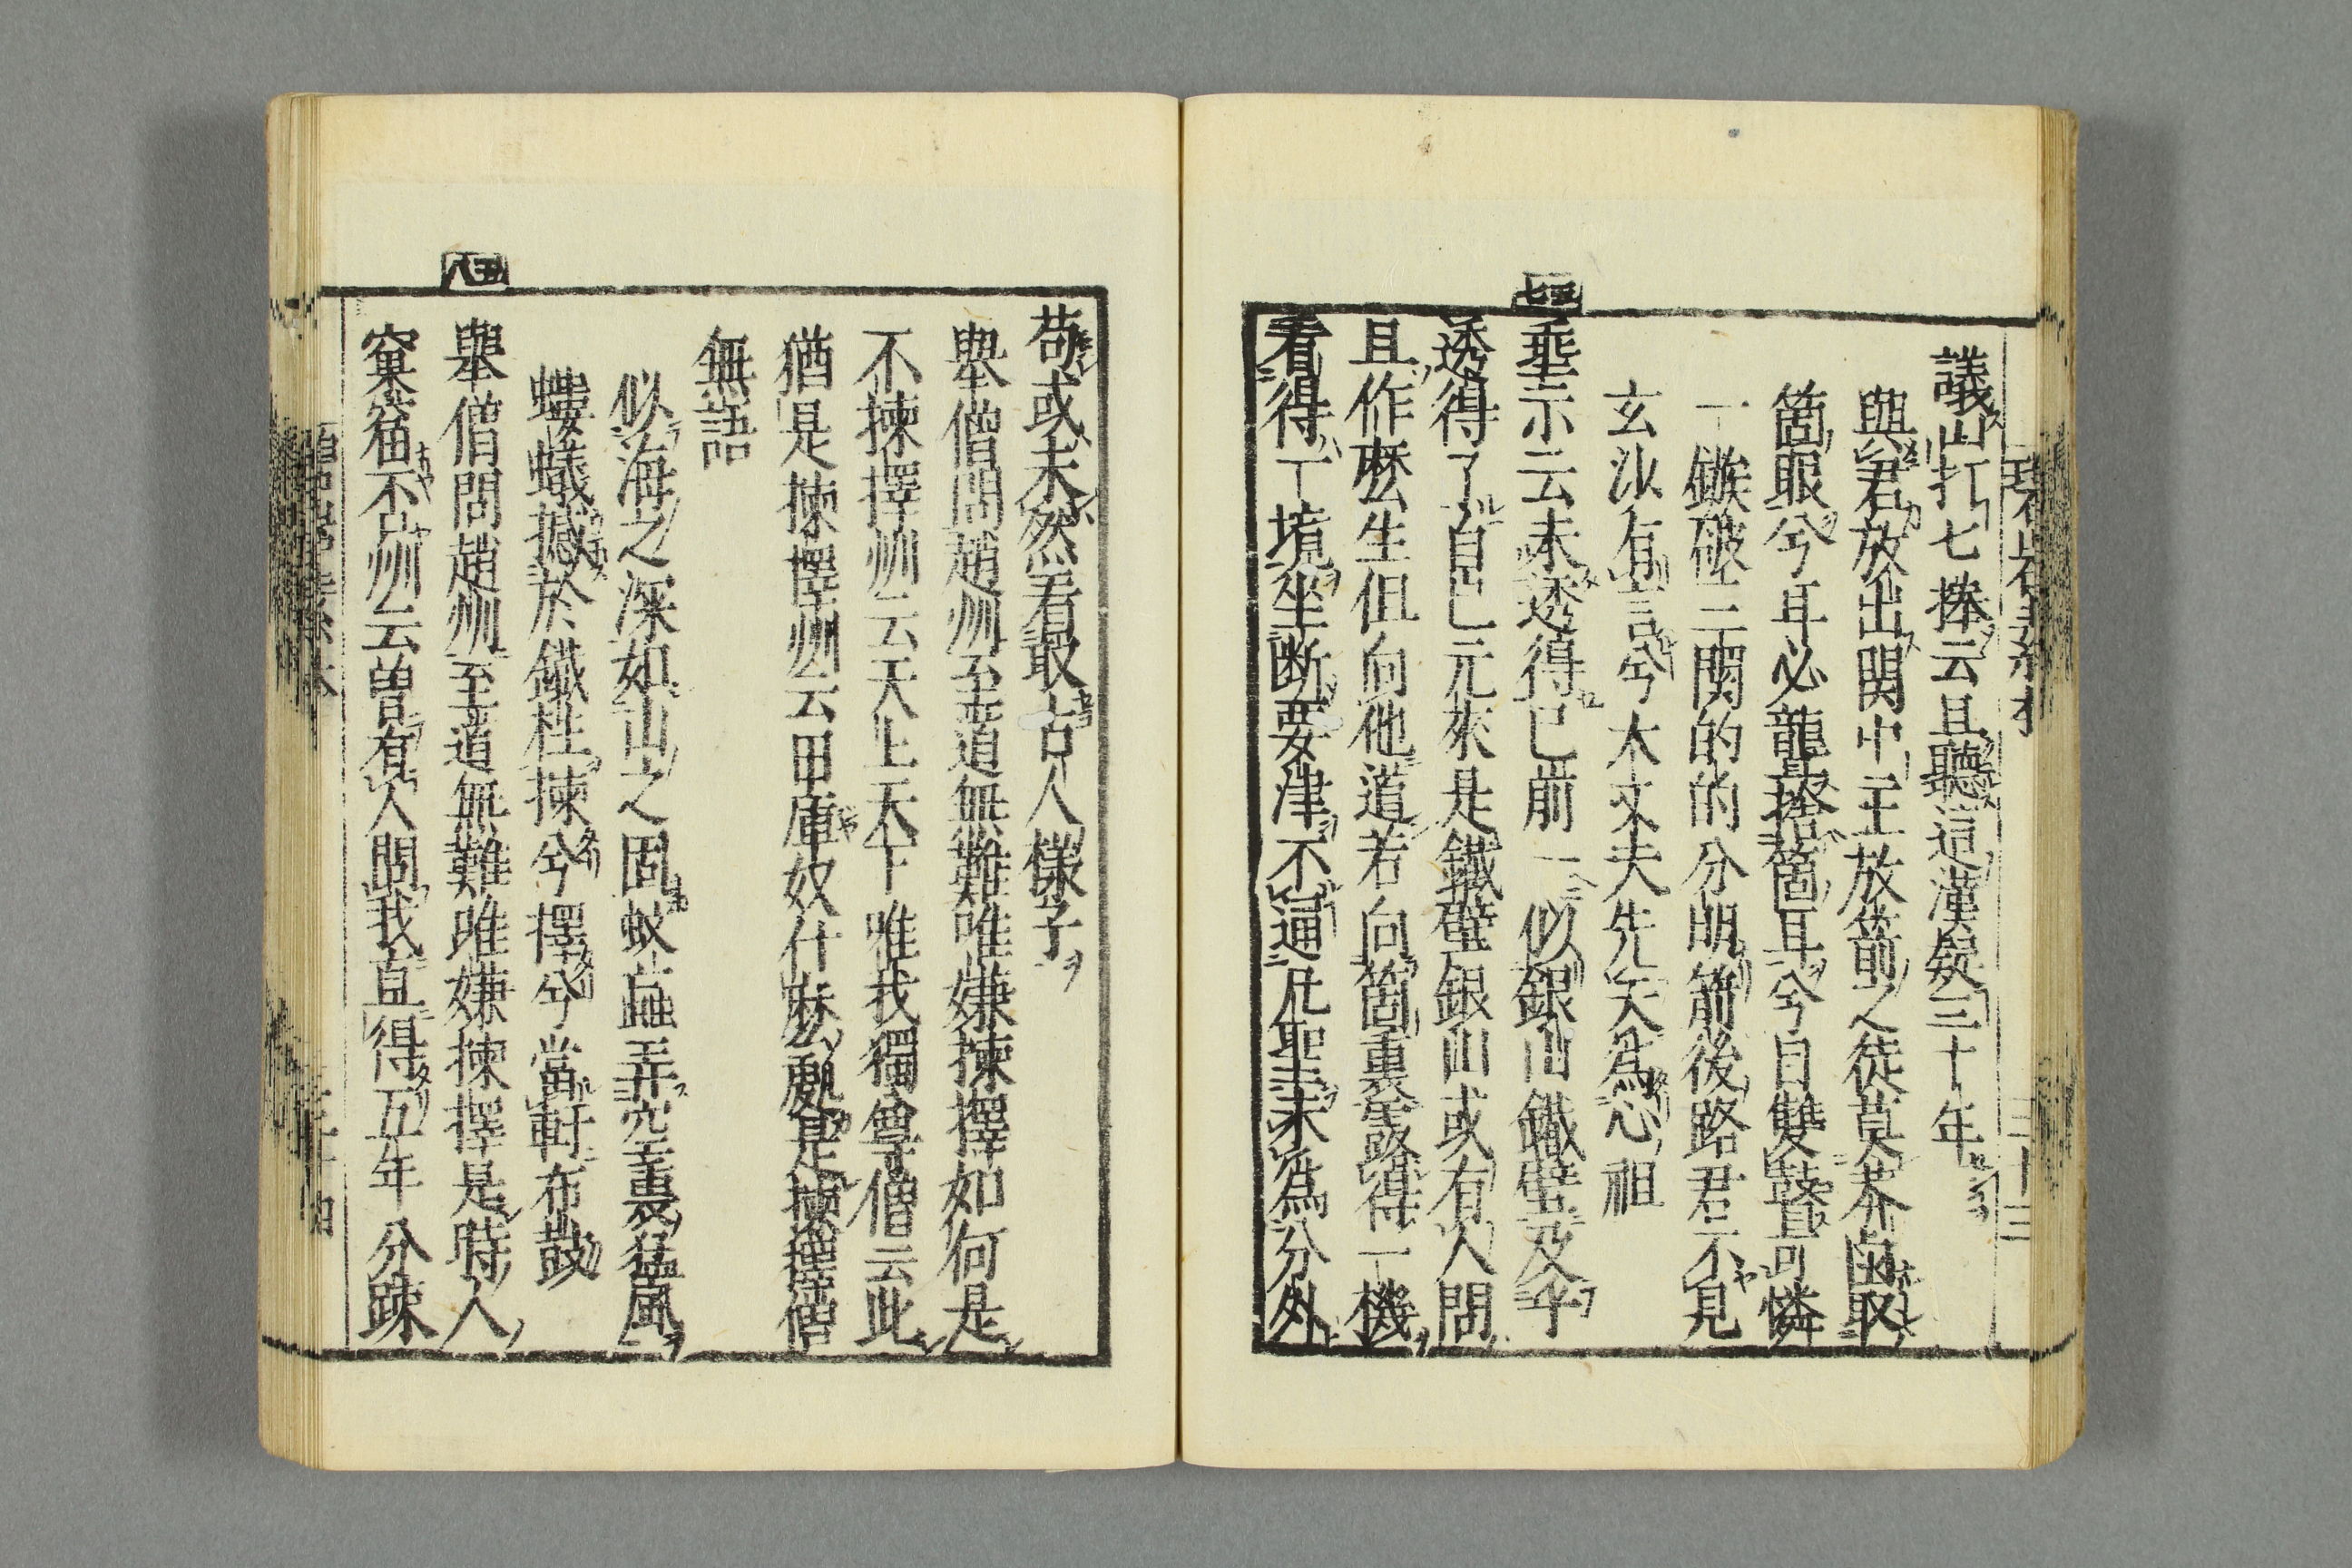 議山打七捧云且聽這漢疑三十年
與君放出関中主放箭之徒莫莽鹵取
箇眼兮耳必聾捨箇耳兮目雙瞽可憐
一鏃破三関的的分明箭後路君不見
玄沙有言兮大丈夫先天爲心祖
五十七
垂示云未透得已前一似銀山鐵壁及乎
透得了自己元來是鐵壁銀山或有人問
且作麽生但向他道若向箇裏露得一機
看得一境坐断要津不通凡聖未爲分外
苟或未然看取古人樣子
舉僧問趙州至道無難唯嫌揀擇如何是
不揀擇州云天上天下唯我獨尊僧云此
猶是揀擇州云田庫奴什麽處是揀擇僧
無語
似海之深如山之固蚊䖟弄空裏猛風
螻蟻撼於鐵柱揀兮擇兮當軒布鼓
五十八
舉僧問趙州至道無難唯嫌揀擇是時人
窠窟不州云曽有人問我直得五年分踈